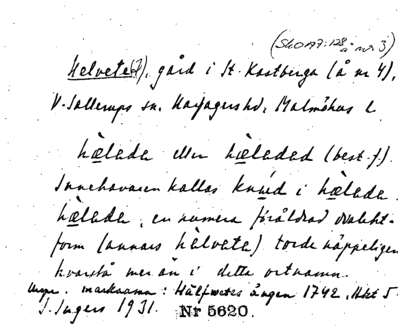 (SkOA7:128 å nr 3)
Helvete(t), gård i St. Kastberga (å nr 4),
V. Sallerups sn, Harjagers hd, Malmöhus l.
hælada eller hæladed (best. f.).
Innehavaren kallas knud i hælada.
hælada, en numera föråldrad dialekt-
form (annars hælveta) torde näppeligen
kvarstå mer än i detta ortnamn.
marknamn: Hälfvetes ängen 1742, Akt 5.
I. Ingers 1931. Nr 5620.